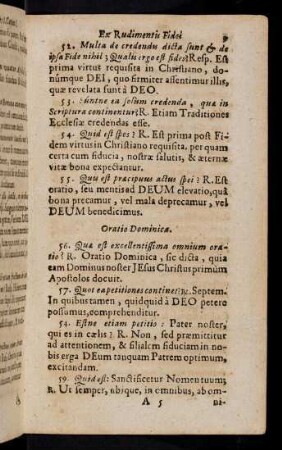 Ex Rudimentis Fidei 9
52. Multa de credendis dicta sunt & de
ipsa Fide nihil; Qualis ergo est fides? Resp. Est
prima virtus requisita in Christiano, do-
numque DEI, quo firmiter assentimur illis,
quæ revelata sunt à DEO.
53. Suntne ea solùm credenda, quæ in
Scriptura continentur? R. Etiam Traditiones
Ecclesiæ credendas esse.
54. Quid est spes? R. Est prima post Fi-
dem virtus in Christiano requisita, per quam
certa cum fiducia, nostræ salutis, & æternæ
vitæ bona expectamus.
55. Quis est præcipuus actus spei? R. Est
oratio, seu mentis ad DEUM elevatio, quâ
bona precamur, vel mala deprecamur, vel
DEUM benedicimus.
Oratio Dominica.
56. Quæ est excellentissima omnium ora-
tio? R. Oratio Dominica, sic dicta, quia
eam Dominus noster JEsus Christus primùm
Apostolos docuit.
57. Quot ea petitiones continet? R. Septem.
In quibus tamen, quidquid à DEO petere
possumus, comprehenditur.
54. Estne etiam petitio: Pater noster,
qui es in cælis? R. Non, sed præmittitur
ad attentionem, & filialem fiduciam in no-
bis erga DEum tanquam Patrem optimum,
excitandam.
59. Quid est: Sanctificetur Nomen tuum;
R. Ut semper, ubique, in omnibus, ab om-
A 5 ni-